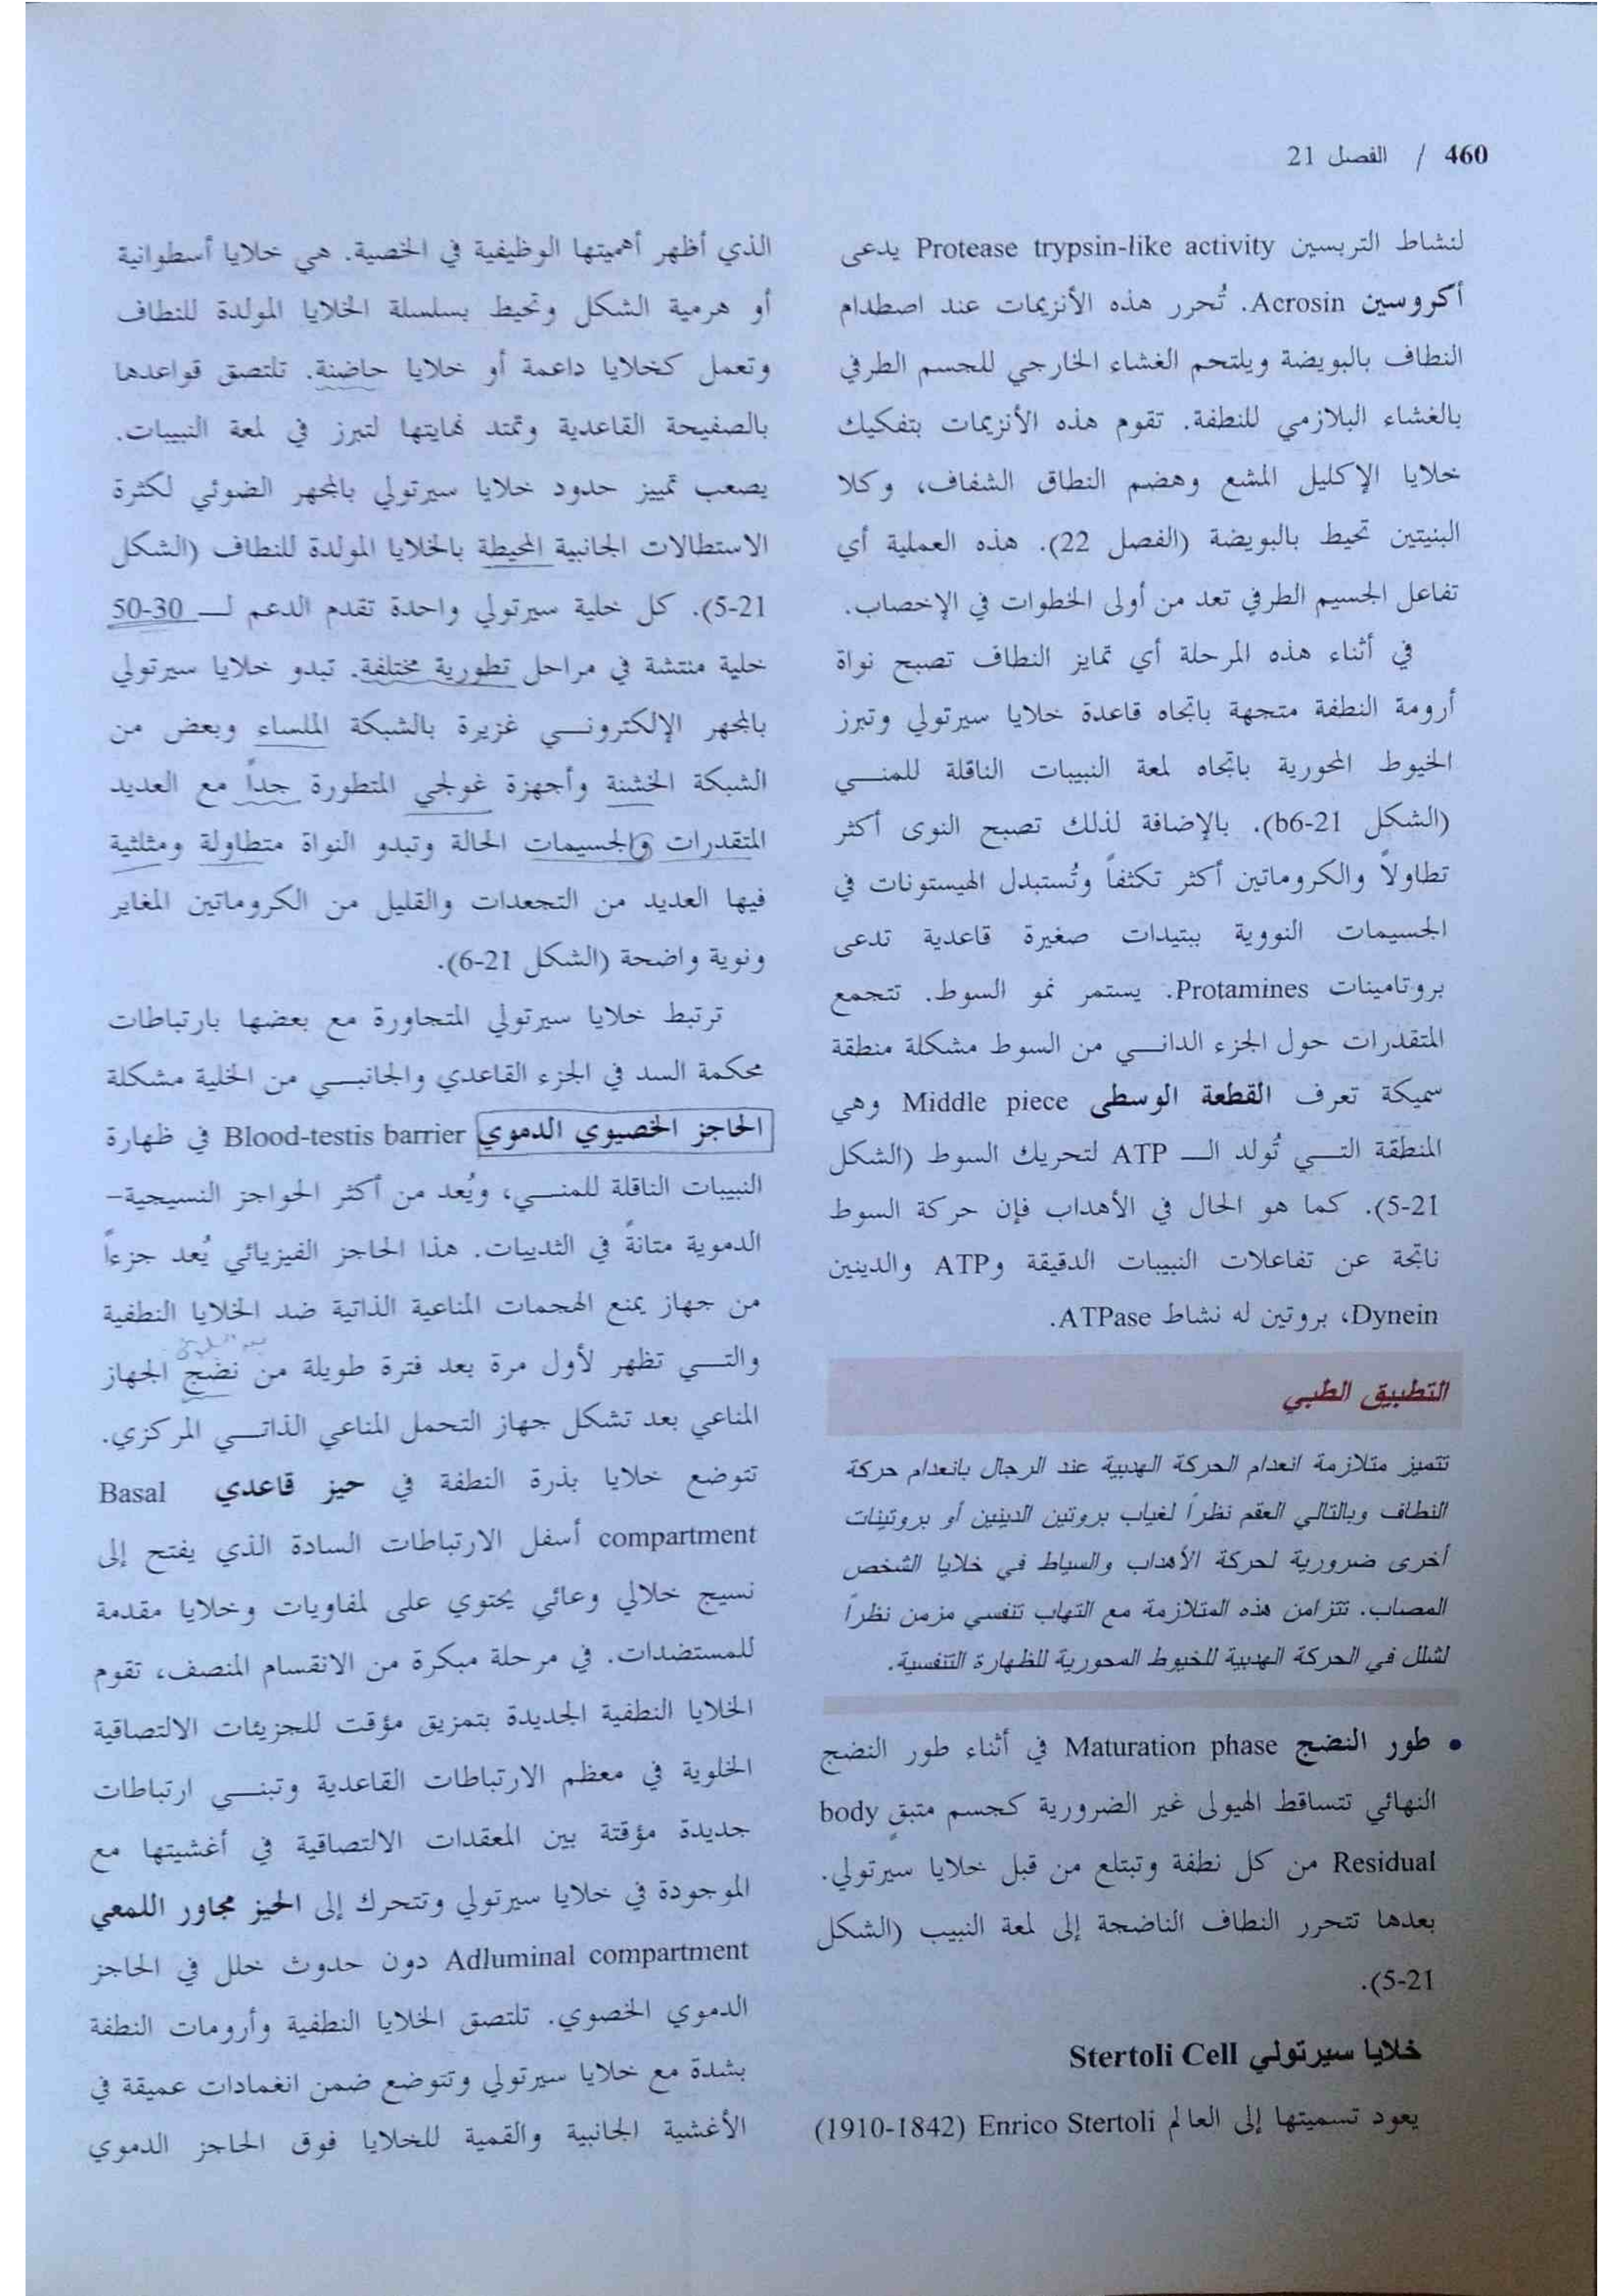 460 / الفصل 21
لنشاط التربسين Protease trypsin-like activity يدعى
أكروسين Acrosin. تُحرر هذه الأنزيمات عند اصطدام
النطاف بالبويضة ويلتحم الغشاء الخارجي للجسم الطرفي
بالغشاء البلازمي للنطفة. تقوم هذه الأنزيمات بتفكيك
خلايا الإكليل المشع وهضم النطاق الشفاف، وكلا
البنيتين تحيط بالبويضة (الفصل 22). هذه العملية أي
تفاعل الجسيم الطرفي تعد من أولى الخطوات في الإخصاب.
في أثناء هذه المرحلة أي تمايز النطاف تصبح نواة
أرومة النطفة متجهة باتجاه قاعدة خلايا سيرتولي وتبرز
الخيوط المحورية باتجاه لمعة النبيبات الناقلة للمنـي
(الشكل 21-b6). بالإضافة لذلك تصبح النوى أكثر
تطاولاً والكروماتين أكثر تكثفاً وتُستبدل الهيستونات في
الجسيمات النووية ببتيدات صغيرة قاعدية تدعى
بروتامينات Protamines. يستمر نمو السوط. تتجمع
المتقدرات حول الجزء الدانـي من السوط مشكلة منطقة
سميكة تعرف القطعة الوسطى Middle piece وهي
المنطقة التـي تُولد الـ ATP لتحريك السوط (الشكل
21-5). كما هو الحال في الأهداب فإن حركة السوط
ناتجة عن تفاعلات النبيبات الدقيقة وATP والدينين
Dynein، بروتين له نشاط ATPase.
التطبيق الطبي
تتميز متلازمة انعدام الحركة الهدبية عند الرجال بانعدام حركة
النطاف وبالتالي العقم نظراً لغياب بروتين الدينين أو بروتينات
أخرى ضرورية لحركة الأهداب والسياط في خلايا الشخص
المصاب. تتزامن هذه المتلازمة مع التهاب تنفسي مزمن نظراً
لشلل في الحركة الهدبية للخيوط المحورية للظهارة التنفسية.
• طور النضج Maturation phase في أثناء طور النضج
النهائي تتساقط الهيولى غير الضرورية كجسم متبقٍ body
Residual من كل نطفة وتبتلع من قبل خلايا سيرتولي.
بعدها تتحرر النطاف الناضجة إلى لمعة النبيب (الشكل
21-5).
خلايا سيرتولي Stertoli Cell
يعود تسميتها إلى العالم Enrico Stertoli (1842-1910)
الذي أظهر أهميتها الوظيفية في الخصية. هي خلايا أسطوانية
أو هرمية الشكل وتحيط بسلسلة الخلايا المولدة للنطاف
وتعمل كخلايا داعمة أو خلايا حاضنة. تلتصق قواعدها
بالصفيحة القاعدية وتمتد نهايتها لتبرز في لمعة النبيبات.
يصعب تمييز حدود خلايا سيرتولي بالمجهر الضوئي لكثرة
الاستطالات الجانبية المحيطة بالخلايا المولدة للنطاف (الشكل
21-5). كل خلية سيرتولي واحدة تقدم الدعم لـ 30-50
خلية منتشة في مراحل تطورية مختلفة. تبدو خلايا سيرتولي
بالمجهر الإلكترونـي غزيرة بالشبكة الملساء وبعض من
الشبكة الخشنة وأجهزة غولجي المتطورة جداً مع العديد
المتقدرات والجسيمات الحالة وتبدو النواة متطاولة ومثلثية
فيها العديد من التجعدات والقليل من الكروماتين المغاير
ونوية واضحة (الشكل 21-6).
ترتبط خلايا سيرتولي المتجاورة مع بعضها بارتباطات
محكمة السد في الجزء القاعدي والجانبـي من الخلية مشكلة
الحاجز الخصيوي الدموي Blood-testis barrier في ظهارة
النبيبات الناقلة للمنـي، ويُعد من أكثر الحواجز النسيجية-
الدموية متانةً في الثدييات. هذا الحاجز الفيزيائي يُعد جزءاً
من جهاز يمنع الهجمات المناعية الذاتية ضد الخلايا النطفية
والتـي تظهر لأول مرة بعد فترة طويلة من نضج الجهاز
المناعي بعد تشكل جهاز التحمل المناعي الذاتـي المركزي.
تتوضع خلايا بذرة النطفة في حيز قاعدي Basal
compartment أسفل الارتباطات السادة الذي يفتح إلى
نسيج خلالي وعائي يحتوي على لمفاويات وخلايا مقدمة
للمستضدات. في مرحلة مبكرة من الانقسام المنصف، تقوم
الخلايا النطفية الجديدة بتمزيق مؤقت للجزيئات الالتصاقية
الخلوية في معظم الارتباطات القاعدية وتبنـي ارتباطات
جديدة مؤقتة بين المعقدات الالتصاقية في أغشيتها مع
الموجودة في خلايا سيرتولي وتتحرك إلى الحيز مجاور اللمعي
Adluminal compartment دون حدوث خلل في الحاجز
الدموي الخصوي. تلتصق الخلايا النطفية وأرومات النطفة
بشدة مع خلايا سيرتولي وتتوضع ضمن انغمادات عميقة في
الأغشية الجانبية والقمية للخلايا فوق الحاجز الدموي